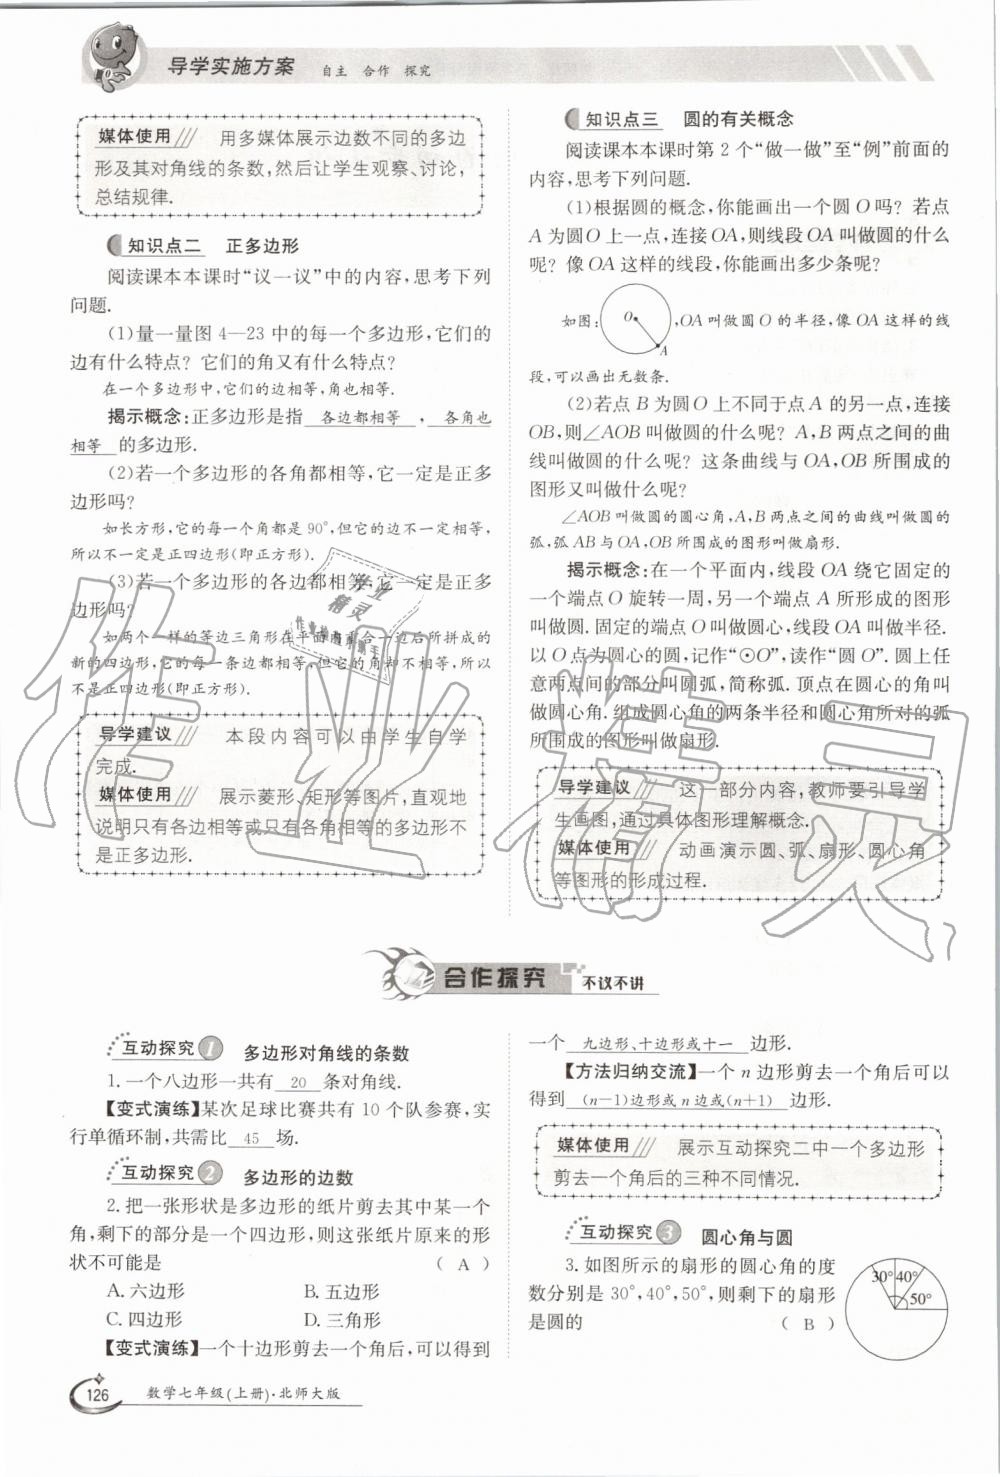 导学实施方案 自主 合作 探究
媒体使用 用多媒体展示边数不同的多边
形及其对角线的条数,然后让学生观察、讨论,
总结规律.
知识点二 正多边形
阅读课本本课时“议一议”中的内容,思考下列
问题.
(1)量一量图 4—23 中的每一个多边形,它们的
边有什么特点? 它们的角又有什么特点?
在一个多边形中,它们的边相等,角也相等.
揭示概念:正多边形是指 各边都相等 , 各角也
相等 的多边形.
(2)若一个多边形的各角都相等,它一定是正多
边形吗?
如长方形,它的每一个角都是 90°,但它的边不一定相等,
所以不一定是正四边形(即正方形).
(3)若一个多边形的各边都相等,它一定是正多
边形吗?
如两个一样的等边三角形在平面内重合一边后所拼成的
新的四边形,它的每一条边都相等,但它的角却不相等,所以
不是正四边形(即正方形).
导学建议 本段内容可以由学生自学
完成.
媒体使用 展示菱形、矩形等图片,直观地
说明只有各边相等或只有各角相等的多边形不
是正多边形.
知识点三 圆的有关概念
阅读课本本课时第 2 个“做一做”至“例”前面的
内容,思考下列问题.
(1)根据圆的概念,你能画出一个圆 O 吗? 若点
A 为圆O 上一点,连接 OA,则线段 OA 叫做圆的什么
呢? 像 OA 这样的线段,你能画出多少条呢?
如图: O A ,OA 叫做圆 O 的半径,像 OA 这样的线
段,可以画出无数条.
(2)若点 B 为圆 O 上不同于点 A 的另一点,连接
OB,则∠AOB 叫做圆的什么呢? A,B 两点之间的曲
线叫做圆的什么呢? 这条曲线与 OA,OB 所围成的
图形又叫做什么呢?
∠AOB 叫做圆的圆心角,A,B 两点之间的曲线叫做圆的
弧,弧 AB 与 OA,OB 所围成的图形叫做扇形.
揭示概念:在一个平面内,线段 OA 绕它固定的
一个端点 O 旋转一周,另一个端点 A 所形成的图形
叫做圆.固定的端点 O 叫做圆心,线段 OA 叫做半径.
以 O 点为圆心的圆,记作“⊙O”,读作“圆 O”.圆上任
意两点间的部分叫圆弧,简称弧.顶点在圆心的角叫
做圆心角.组成圆心角的两条半径和圆心角所对的弧
所围成的图形叫做扇形.
导学建议 这一部分内容,教师要引导学
生画图,通过具体图形理解概念.
媒体使用 动画演示圆、弧、扇形、圆心角
等图形的形成过程.
作业精灵
合作探究 不议不讲
互动探究 1 多边形对角线的条数
1.一个八边形一共有 20 条对角线.
【变式演练】某次足球比赛共有 10 个队参赛,实
行单循环制,共需比 45 场.
互动探究 2 多边形的边数
2.把一张形状是多边形的纸片剪去其中某一个
角,剩下的部分是一个四边形,则这张纸片原来的形
状不可能是 ( A )
A.六边形 B.五边形
C.四边形 D.三角形
【变式演练】一个十边形剪去一个角后,可以得到
一个 九边形、十边形或十一 边形.
【方法归纳交流】一个 n 边形剪去一个角后可以
得到 (n−1)边形或 n 边或(n+1) 边形.
媒体使用 展示互动探究二中一个多边形
剪去一个角后的三种不同情况.
互动探究 3 圆心角与圆
3.如图所示的扇形的圆心角的度
数分别是 30°,40°,50°,则剩下的扇形
是圆的 ( B )
30° 40°
50°
126 数学七年级(上册)·北师大版